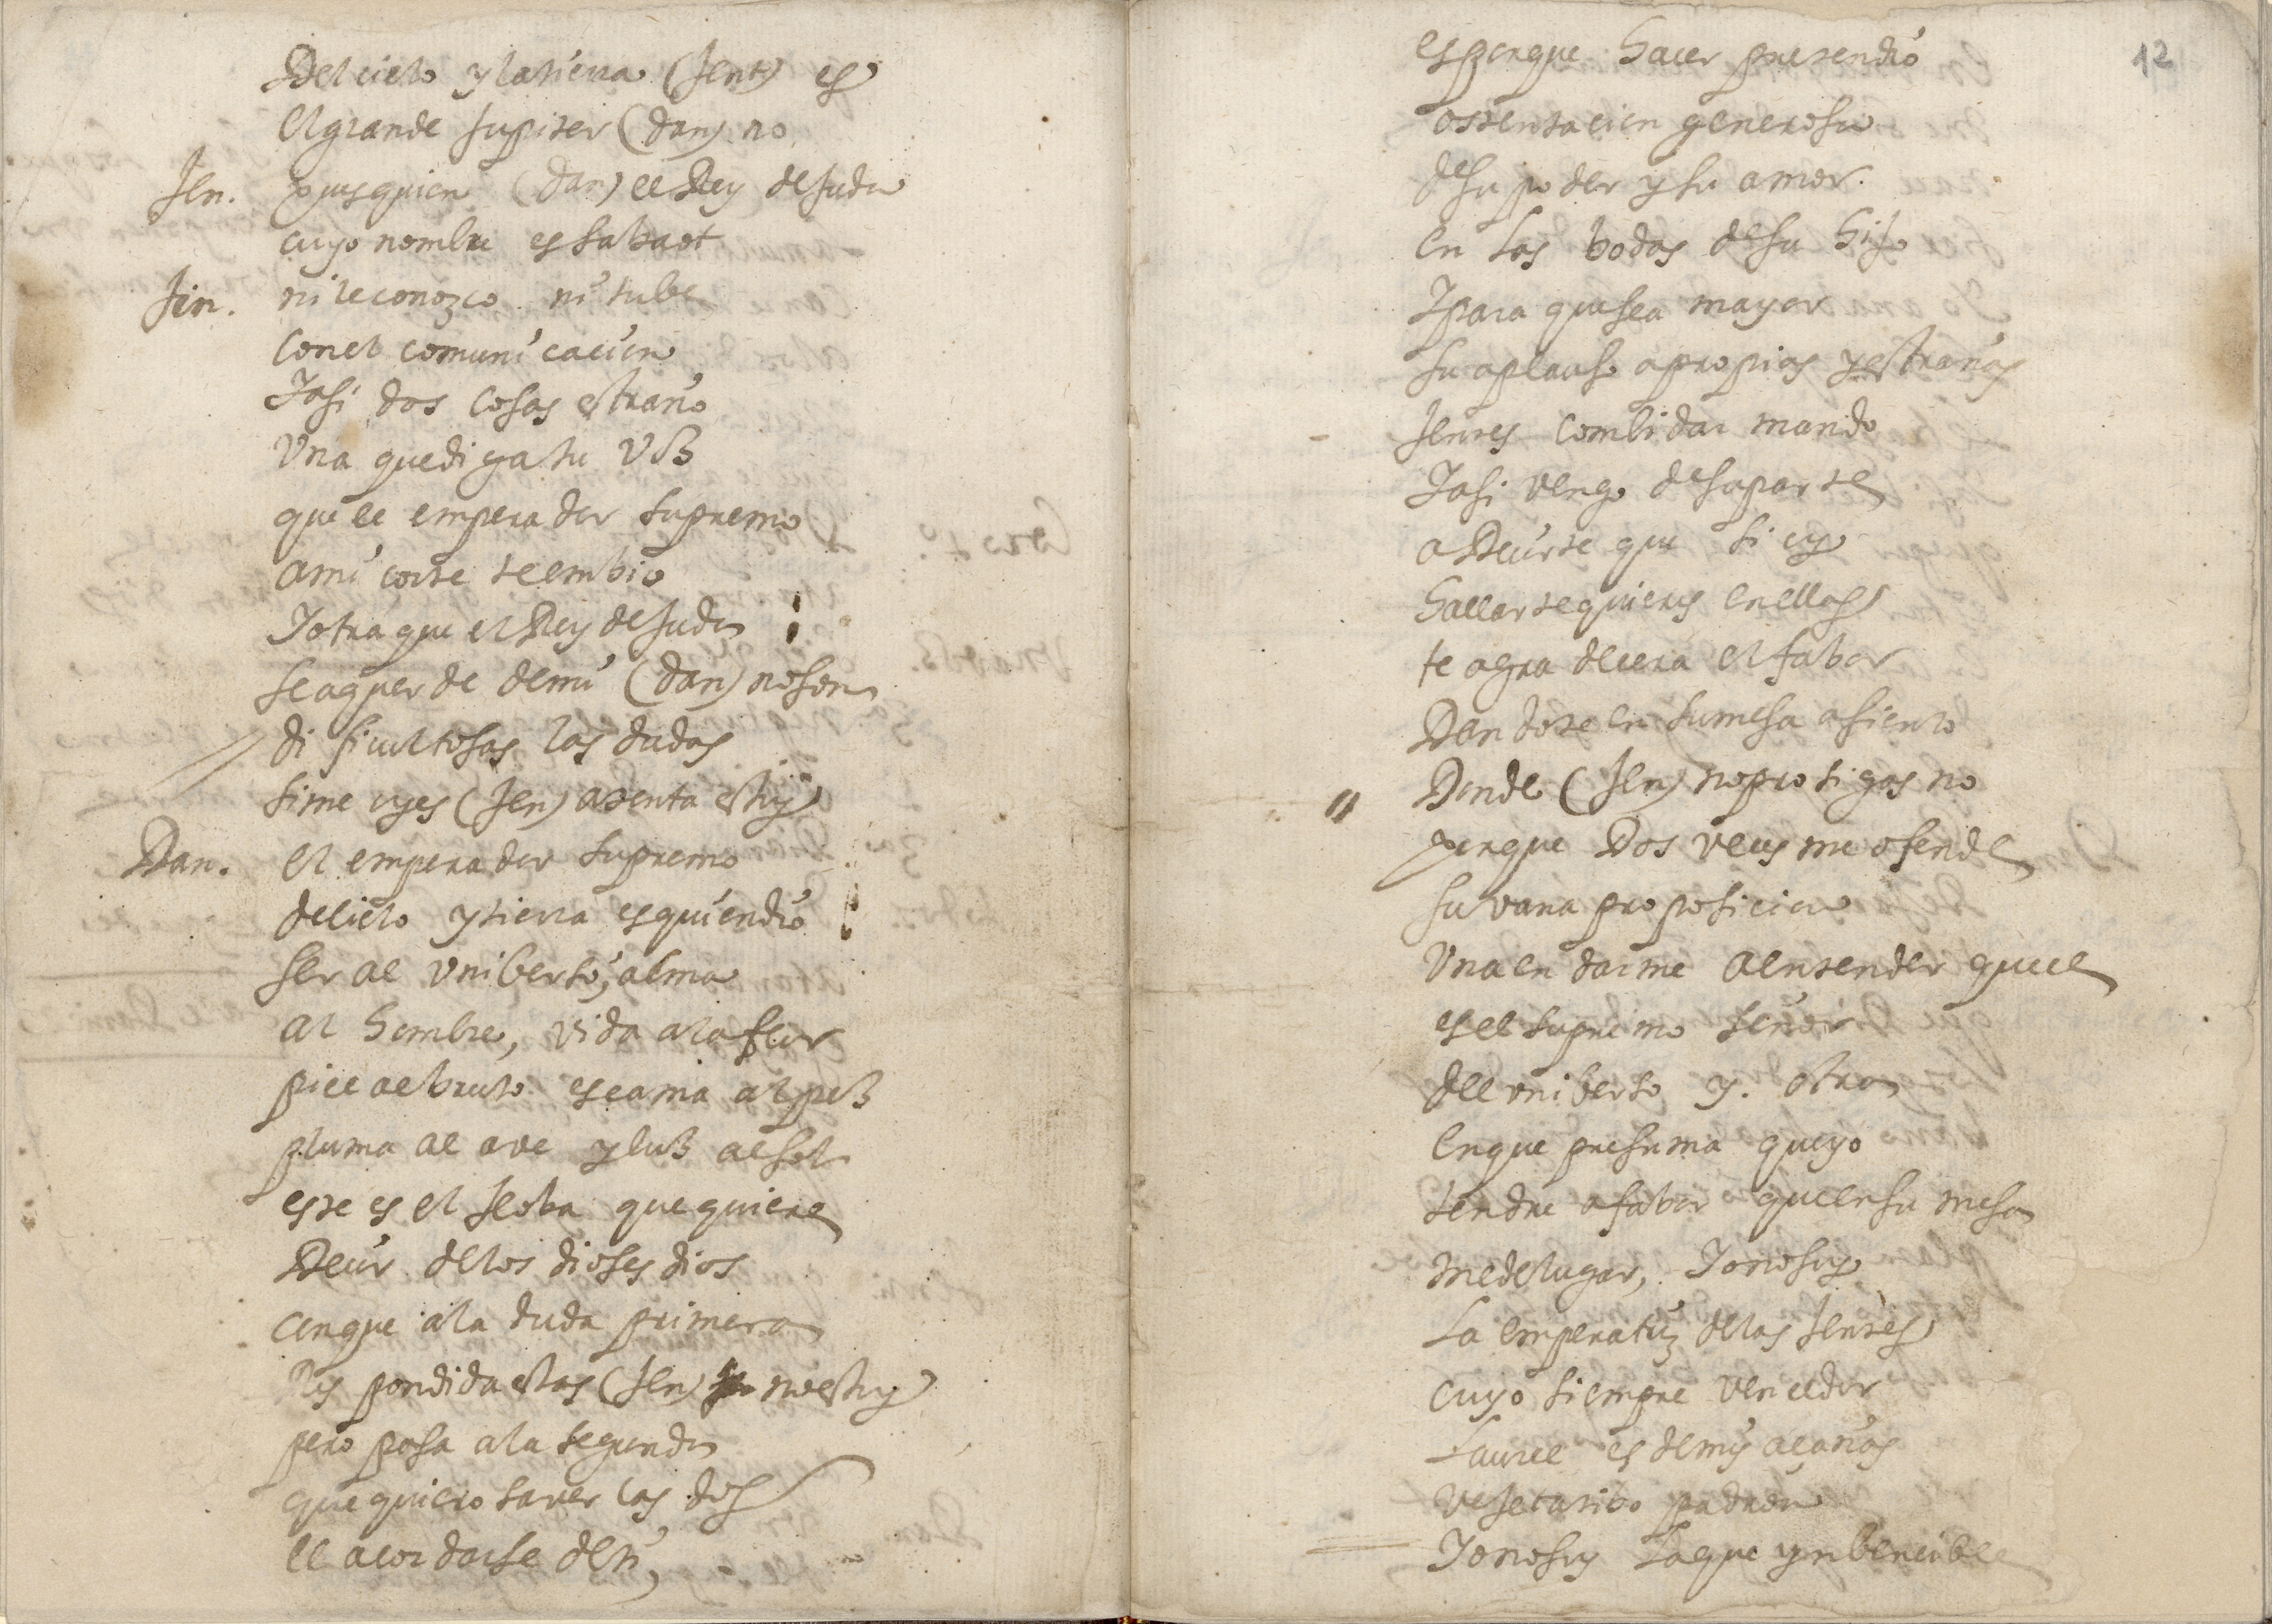 Del cielo y la tierra (Jent) es
el grande Jupiter (dan) no
Jen. pues quien (dan) el Rey de Juda
cuyo nombre es sabaot
Jen. ni le conozco ni tube
con el comunicacion
I asi dos cosas estraño
Una que diga tu voz
que el emperador supremo
a mi corte te embio
I otra que el Rey de Juda
se aquerde de mi (dan) no son
dificultosas las dudas
si me oyes (Jen) atenta estoy
Dan. el emperador supremo
del cielo y tierra es quien dio
ser al universo, alma
al hombre, vida a la flor
piel al bruto escama al pez
pluma al ave y luz al sol
este es el Jeoba que quiere
Decir de los dioses dios
con que a la duda primera
Respondida estas (Jen) no estoy
pero pasa a la segunda
que quiero saver las dos
el acordarse de ti,
12
es porque hacer pretendio
ostentacion generosa
de su poder y su amor.
en las bodas de su hijo
I para que sea mayor
su aplauso a propios y estraños
Jentes combidar mando
I asi vengo de su parte
a Decirte que si oy
hallarte quieres en ellas
te agradecera el fabor
Dandote en su mesa asiento
Donde (Jen) no prosigas no
porque Dos veces me ofende
su vana proposicion
Una en darme a entender que el
es el supremo señor
del universo y. otra
en que presuma que yo
tendre a fabor que en su mesa
me de lugar, Io no soy
La emperatriz de las Jentes
cuyo siempre vencedor
Laurel es de mis açañas
vejetatibo padron
Io no soy La que ynbencible